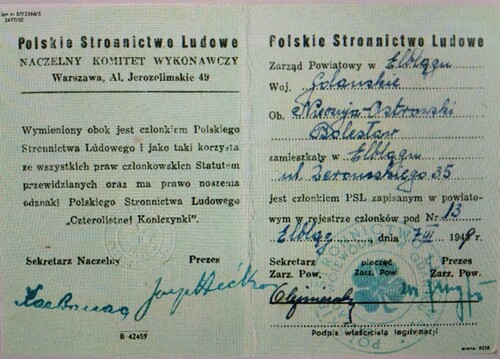 Polskie Stronnictwo Ludowe
NACZELNY KOMITET WYKONAWCZY
Warszawa, Al. Jerozolimskie 49
Wymieniony obok jest członkiem Polskiego
Stronnictwa Ludowego i jako taki korzysta
ze wszystkich praw członkowskich Statutem
przewidzianych oraz ma prawo noszenia
odznaki Polskiego Stronnictwa Ludowego
„Czterolistnej Koniczynki”.
Sekretarz Naczelny Prezes
B 42459
Polskie Stronnictwo Ludowe
Zarząd Powiatowy w Elblągu
Woj. Gdańskie
Ob. Ostrowski
Bolesław
zamieszkały w Elblągu
ul. Żeromskiego 35
jest członkiem PSL zapisanym w powiato-
wym w rejestrze członków pod Nr. 13
Elbląg, dnia 7 III 1949 r.
Sekretarz pieczęć Prezes
Zarz. Pow. Zarz. Pow. Zarz. Pow.
Podpis właściciela legitymacji